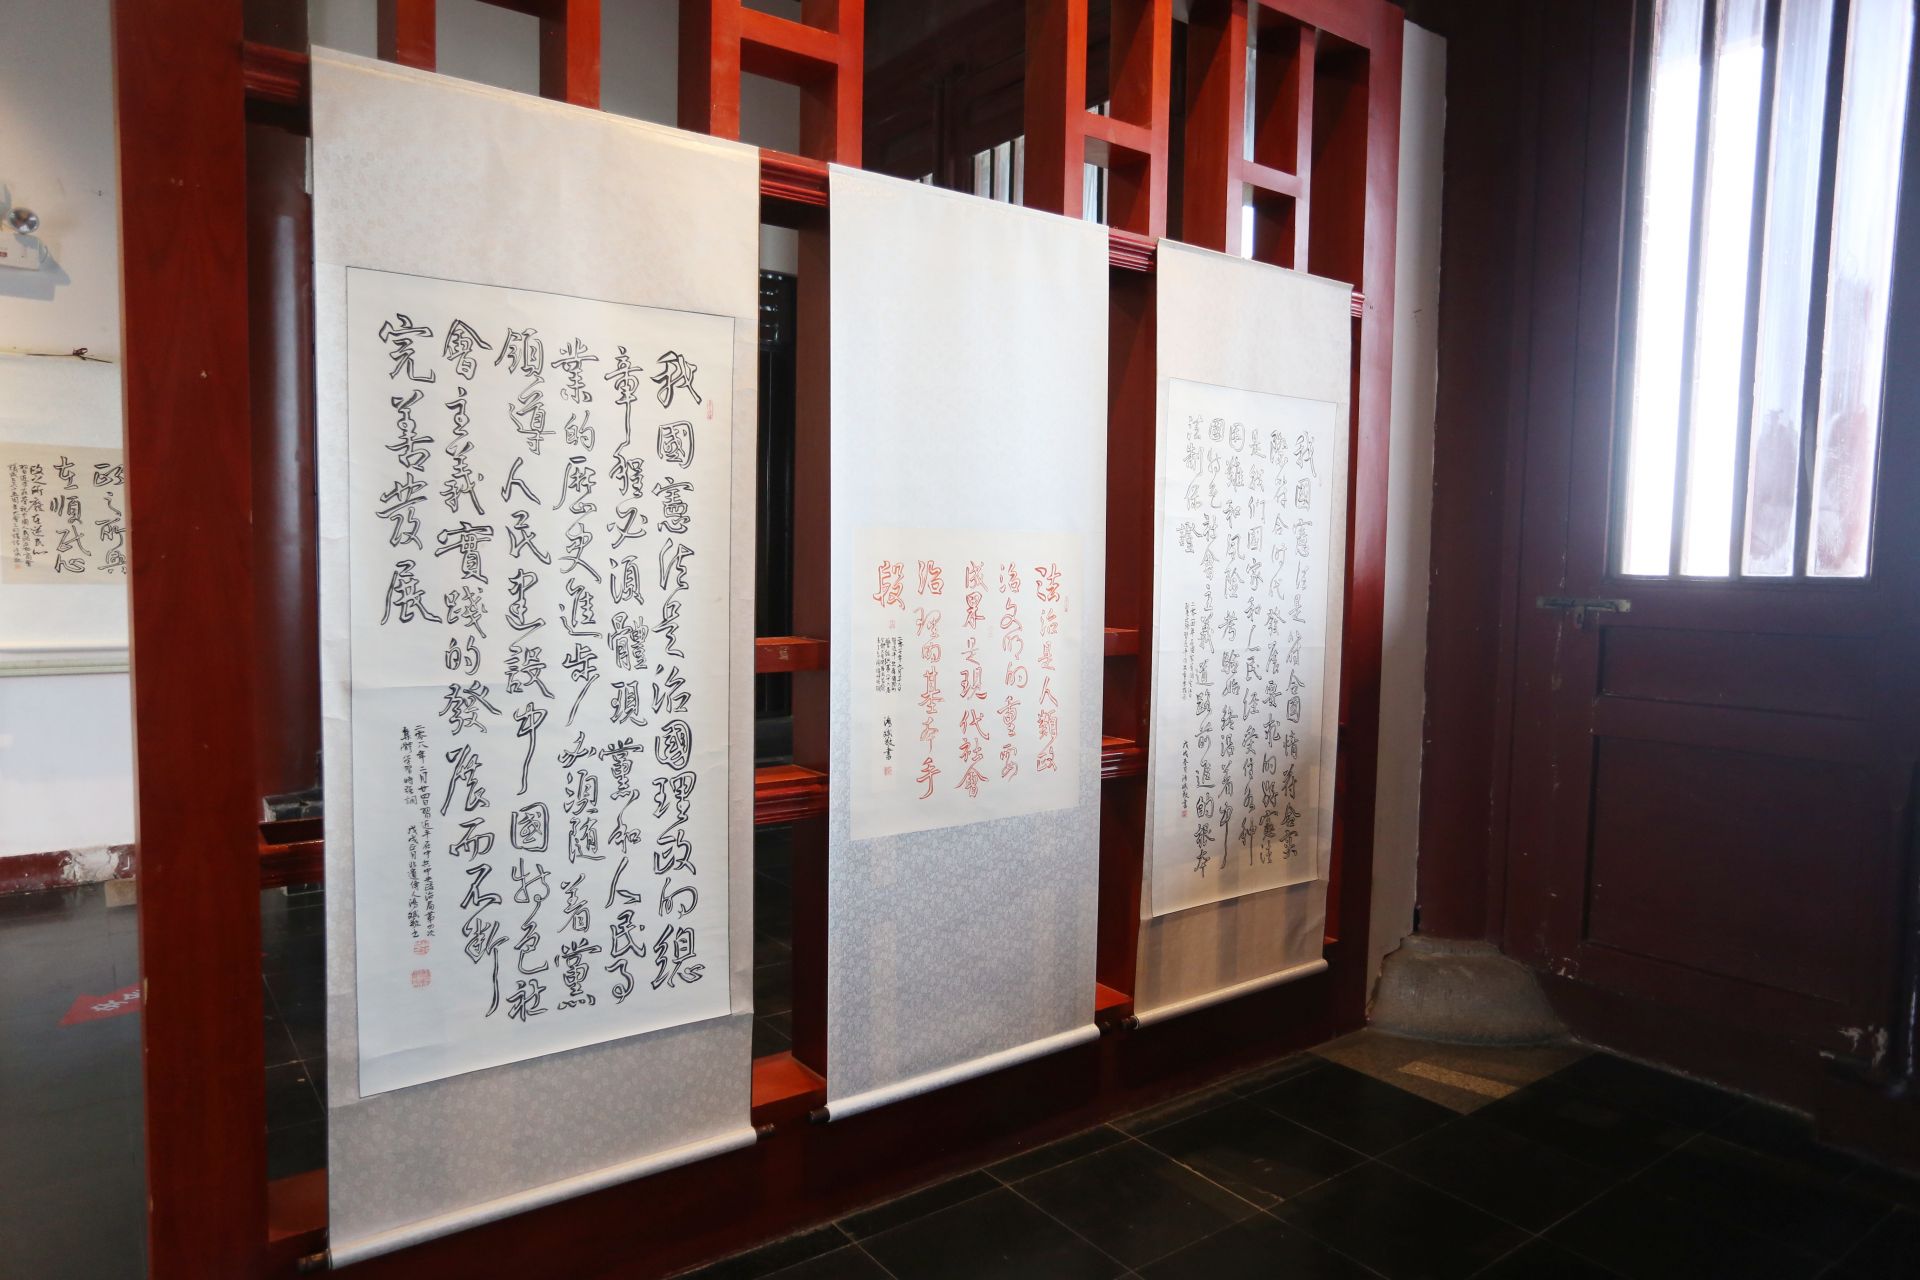 我國憲法是治國理政的總
章程必須體現黨和人民事
業的歷史進步必須隨着黨
領導人民建設中國特色社
會主義實踐的發展而不斷
完善發展
二零一八年二月廿四日習近平在中共中央政治局第四次
集體學習時強調
法治是人類政
治文明的重要
成果是現代社會
治理的基本手
段
我國憲法是符合國情符合實
際符合时代發展要求的好憲法
是我們國家和人民經受住各種
困難和风险考驗始終沿着中
國特色社會主義道路前進的根本
法制保證
政之所興
在順民心
政之所廢在逆民心